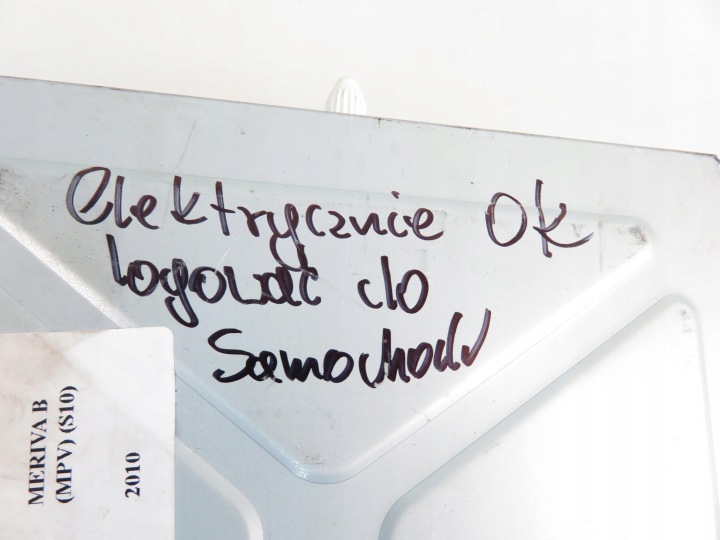 elektrycznie OK
logować do
Samochodu
MERIVA B
(MPV) (S10)
2010